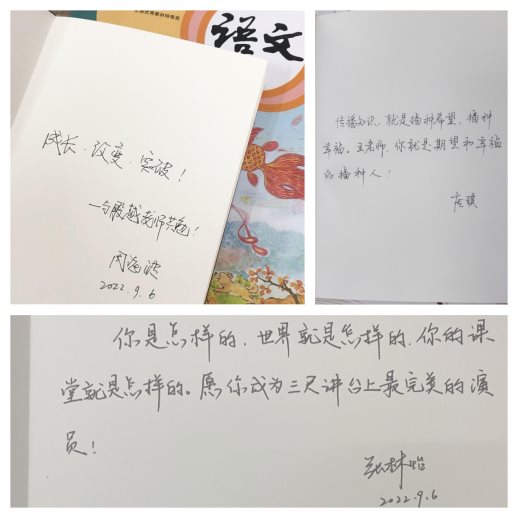 语文
成长、改变、突破！
一与殷越老师共勉！
周海波
2022.9.6
传播知识，就是播种希望，播种
幸福。王老师，你就是期望和幸福
的播种人！
你是怎样的，世界就是怎样的，你的课
堂就是怎样的。愿你成为三尺讲台上最完美的演
员！
张林怡
2022.9.6